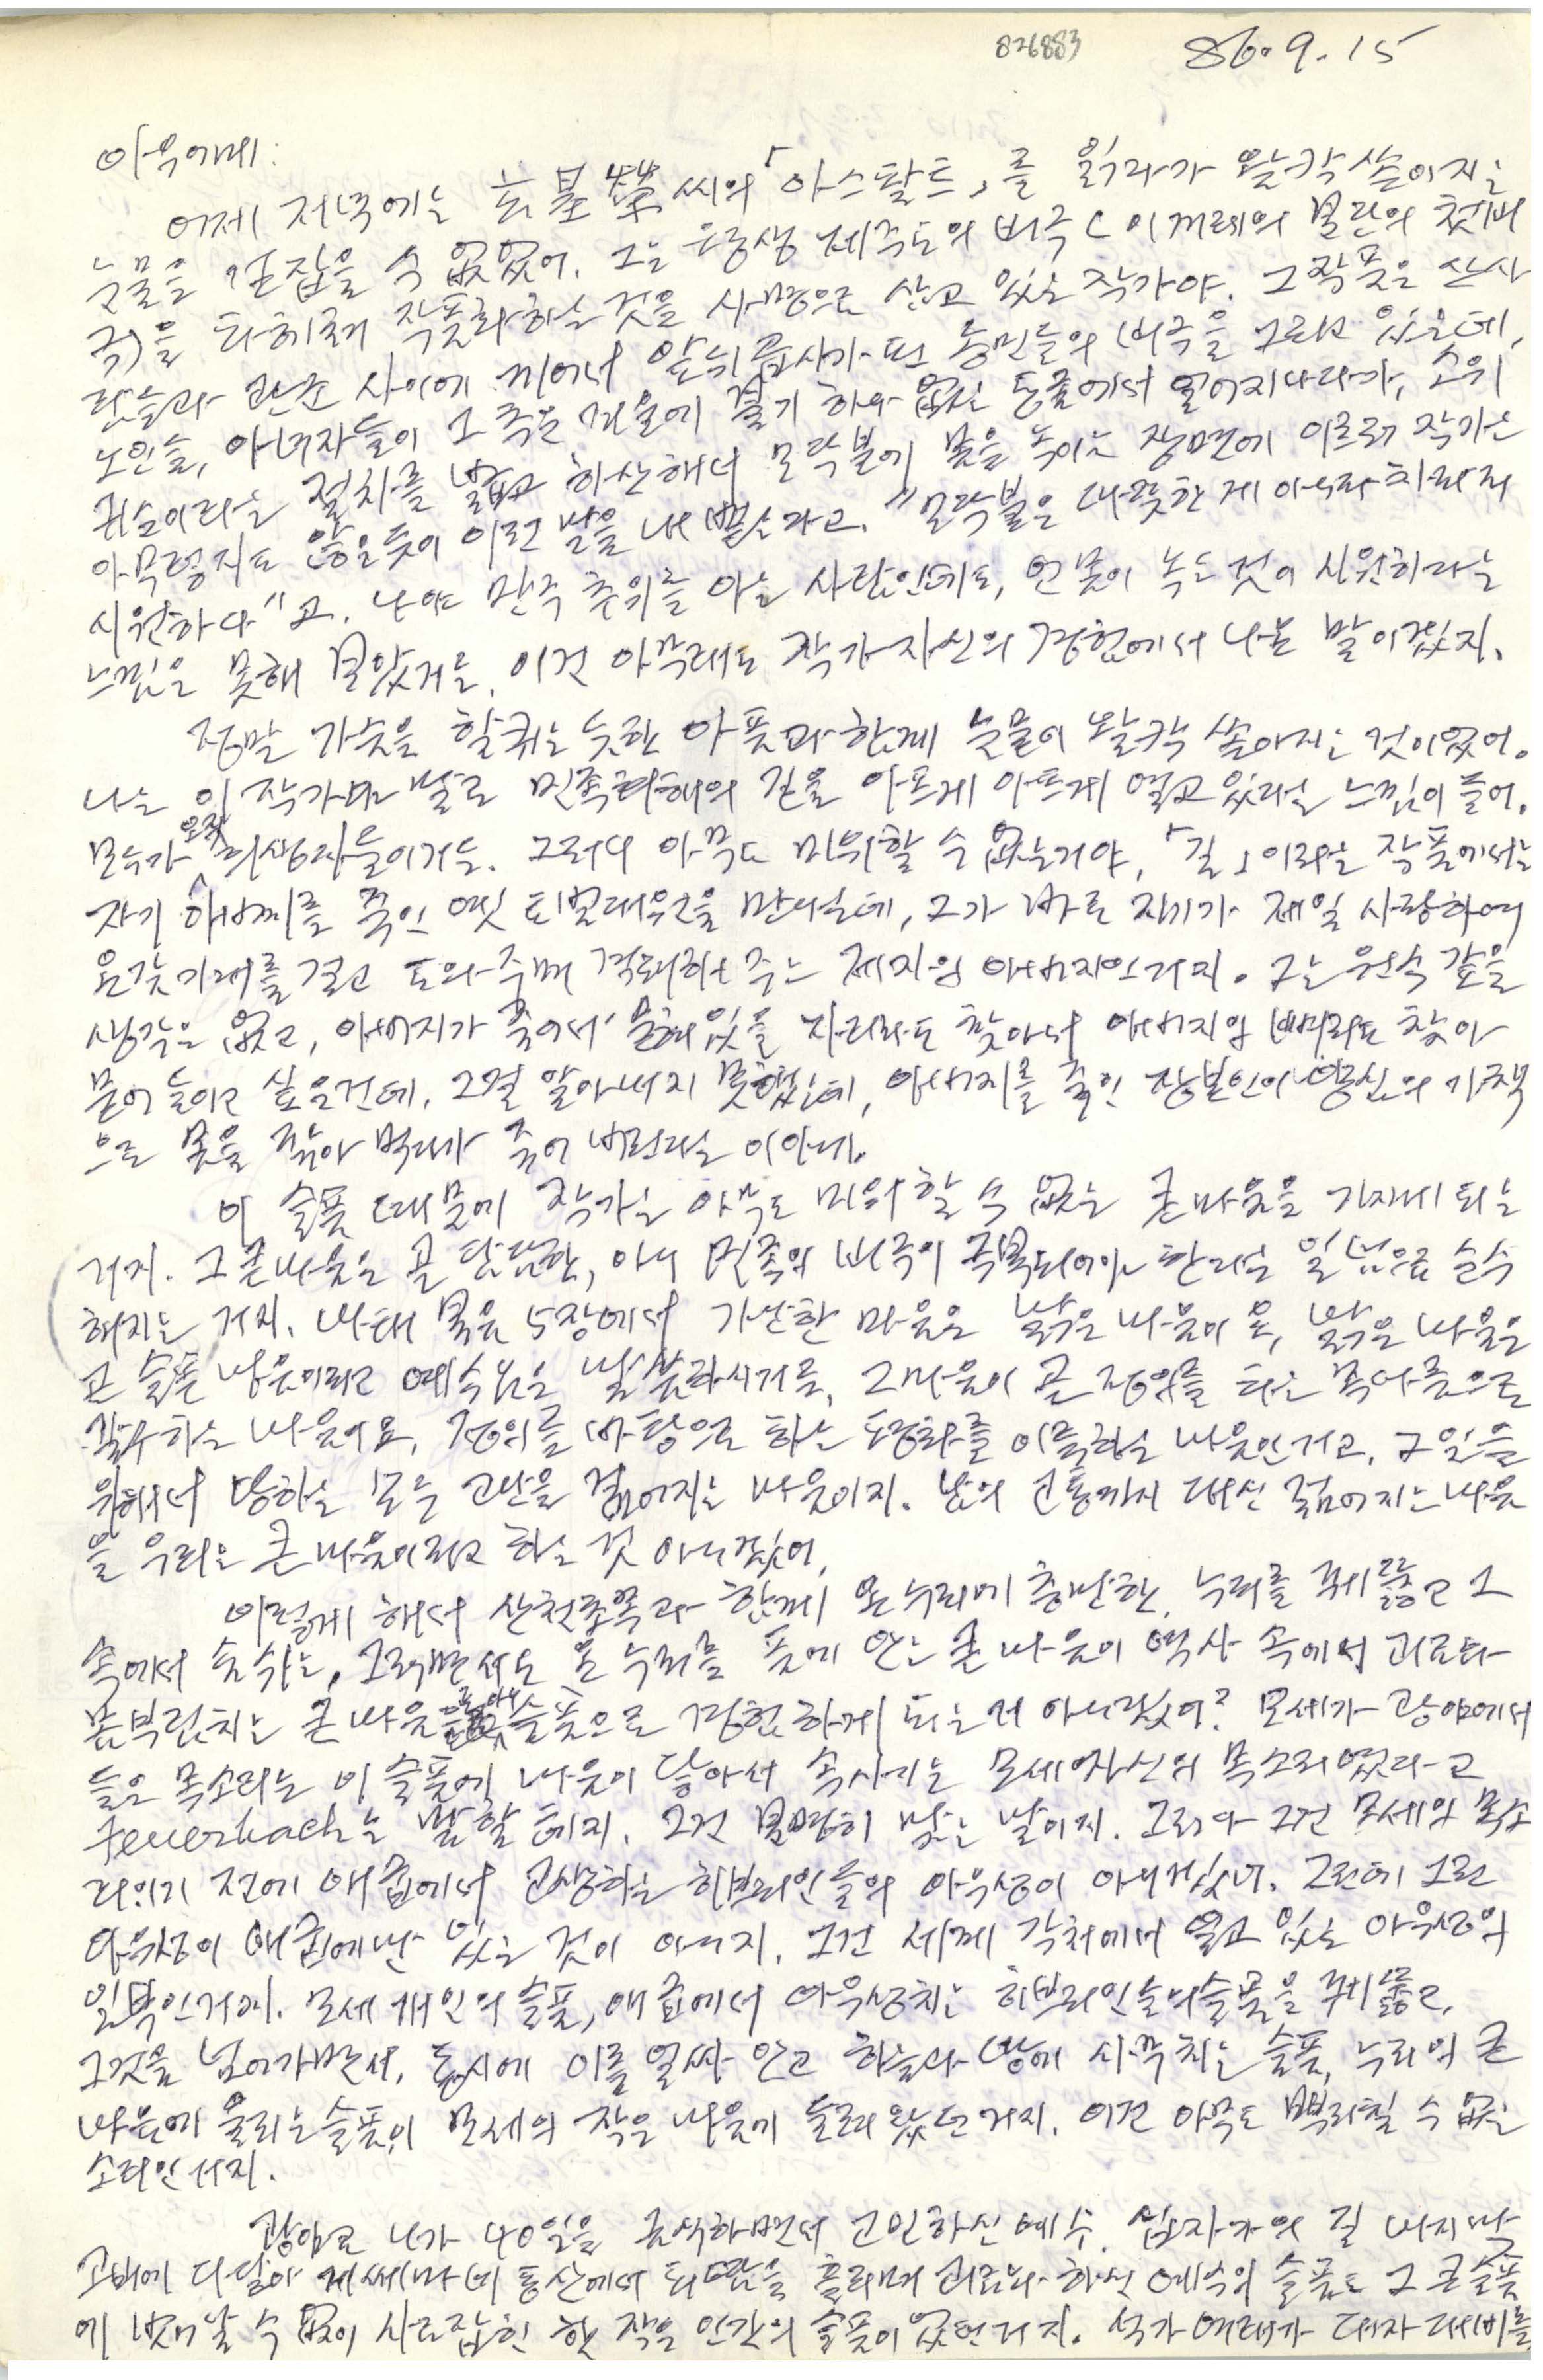 826883 86. 9. 15
아우에게:
어제 저녁에는 玄基榮씨의 「아스팔트」를 읽다가 왈칵 쏟아지는
눈물을 걷잡을 수 없었어. 그는 평생 제주도의 비극(이 겨레의 분단의 첫 비
극)을 파헤쳐 작품화하는 것을 사명으로 살고 있는 작가야. 그 작품은 산사
람들과 관군 사이에 끼어서 앞뒤 곱사가 된 농민들의 비극을 그리고 있는데,
노인들, 아녀자들이 그 추운 겨울에 불기 하나 없는 동굴에서 얼어지내다가, 소위
귀순이라는 절차를 밟고 하산해서 모닥불에 몸을 녹이는 장면에 이르러 작가는
아무렇지도 않은듯이 이런 말을 내뱉는다고. "모닥불은 따뜻한 게 아니라 차라리
시원하다"고. 나야 만주 추위를 아는 사람인데도, 언 몸이 녹는 것이 시원하다는
느낌은 못해 보았거든. 이건 아무래도 작가 자신의 경험에서 나온 말이겠지.
정말 가슴을 할퀴는 듯한 아픔과 함께 눈물이 왈칵 쏟아지는 것이었어.
나는 이 작가만 말로 민족화해의 길을 아프게 아프게 열고 있다는 느낌이 들어.
모두가 오직 희생자들이거든. 그러니 아무도 미워할 수 없는거야. 「길」이라는 작품에서는
자기 아버지를 죽인 옛 토벌대원을 만나는데, 그가 바로 자기가 제일 사랑하여
온갖 기대를 걸고 도와주며 격려해 주는 제자의 아버지인거지. 그는 원수 갚을
생각은 없고, 아버지가 죽어서 묻혀 있을 자리라도 찾아서 아버지의 뼈라도 찾아
묻어 드리고 싶은건데. 그걸 알아내지 못했는데, 아버지를 죽인 장본인이 양심의 가책
으로 몸을 갉아 먹다가 죽어 버린다는 이야기.
이 슬픔 때문에 작가는 아무도 미워할 수 없는 큰 마음을 가지게 되는
거지. 그 큰 마음은 곧 담담한, 아니 민족의 비극이 극복되어야 한다는 일념으로 순수
해지는 거지. 마태 복음 5장에서 가난한 마음은 맑은 마음이요, 맑은 마음은
곧 슬픈 마음이라고 예수님은 말씀하시거든. 그 마음이 곧 정의를 타는 목마름으로
갈구하는 마음이요, 정의를 바탕으로 하는 평화를 이룩하는 마음인거고. 그 일을
위해서 당하는 모든 고난을 짊어지는 마음이지. 남의 고통까지 대신 짊어지는 마음
을 우리는 큰 마음이라고 하는 것 아니겠어.
이렇게 해서 산천초목과 함께 온 누리에 충만한, 누리를 꿰뚫고 그
속에서 숨쉬는, 그러면서도 온 누리를 품에 안는 큰 마음이 역사 속에서 괴로와
몸부림치는 큰 마음을 슬픔으로 경험하게 되는거 아니겠어? 모세가 광야에서
들은 목소리는 이 슬픔에 마음이 닿아서 속삭이는 모세 자신의 목소리였다고
Feuerbach는 말할 테지. 그건 분명히 맞는 말이지. 그러나 그건 모세의 목소
리이기 전에 애굽에서 고생하는 히브리인들의 아우성이 아니겠니. 그런데 그런
아우성이 애굽에만 있는 것이 아니지. 그건 세계 각처에서 울고 있는 아우성의
일부인거지. 모세 개인의 슬픔, 애굽에서 아우성치는 히브리인들의 슬픔을 꿰뚫고,
그것을 넘어가면서, 동시에 이를 얼싸 안고 하늘과 땅에 사무치는 슬픔, 누리의 큰
마음에 울리는 슬픔이 모세의 작은 마음에 들려 왔던거지. 이건 아무도 뿌리칠 수 없는
소리인거지.
광야로 나가 40일을 금식하면서 고민하신 예수, 십자가의 길 마지막
고비에 다달아 게쎄마네 동산에서 피땀을 흘리며 괴로와 하신 예수의 슬픔도 그 큰 슬픔
에 벗어날 수 없이 사로잡힌 한 작은 인간의 슬픔이었던거지. 석가여래가 대자대비를